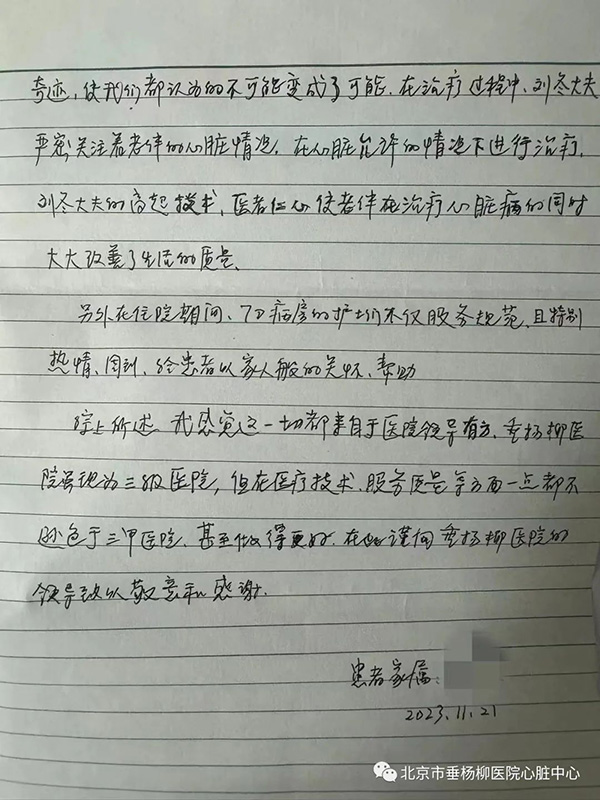 奇迹,使我们都认为的不可能变成了可能.在治疗过程中,刘冬大夫
严密关注着老伴的心脏情况.在心脏允许的情况下进行治疗,
刘冬大夫的高超技术,医者仁心使老伴在治疗心脏病的同时
大大改善了生活的质量、
另外在住院期间、7D病房的护士们不仅服务规范,且特别
热情、周到、给患者以家人般的关怀、帮助
综上所述 我感觉这一切都来自于医院领导有方.垂杨柳医
院虽现为三级医院,但在医疗技术、服务质量等方面一点都不
逊色于三甲医院、甚至做得更好.在此谨向垂杨柳医院的
领导致以敬意和感谢.
患者家属:
2023.11.21
北京市垂杨柳医院心脏中心